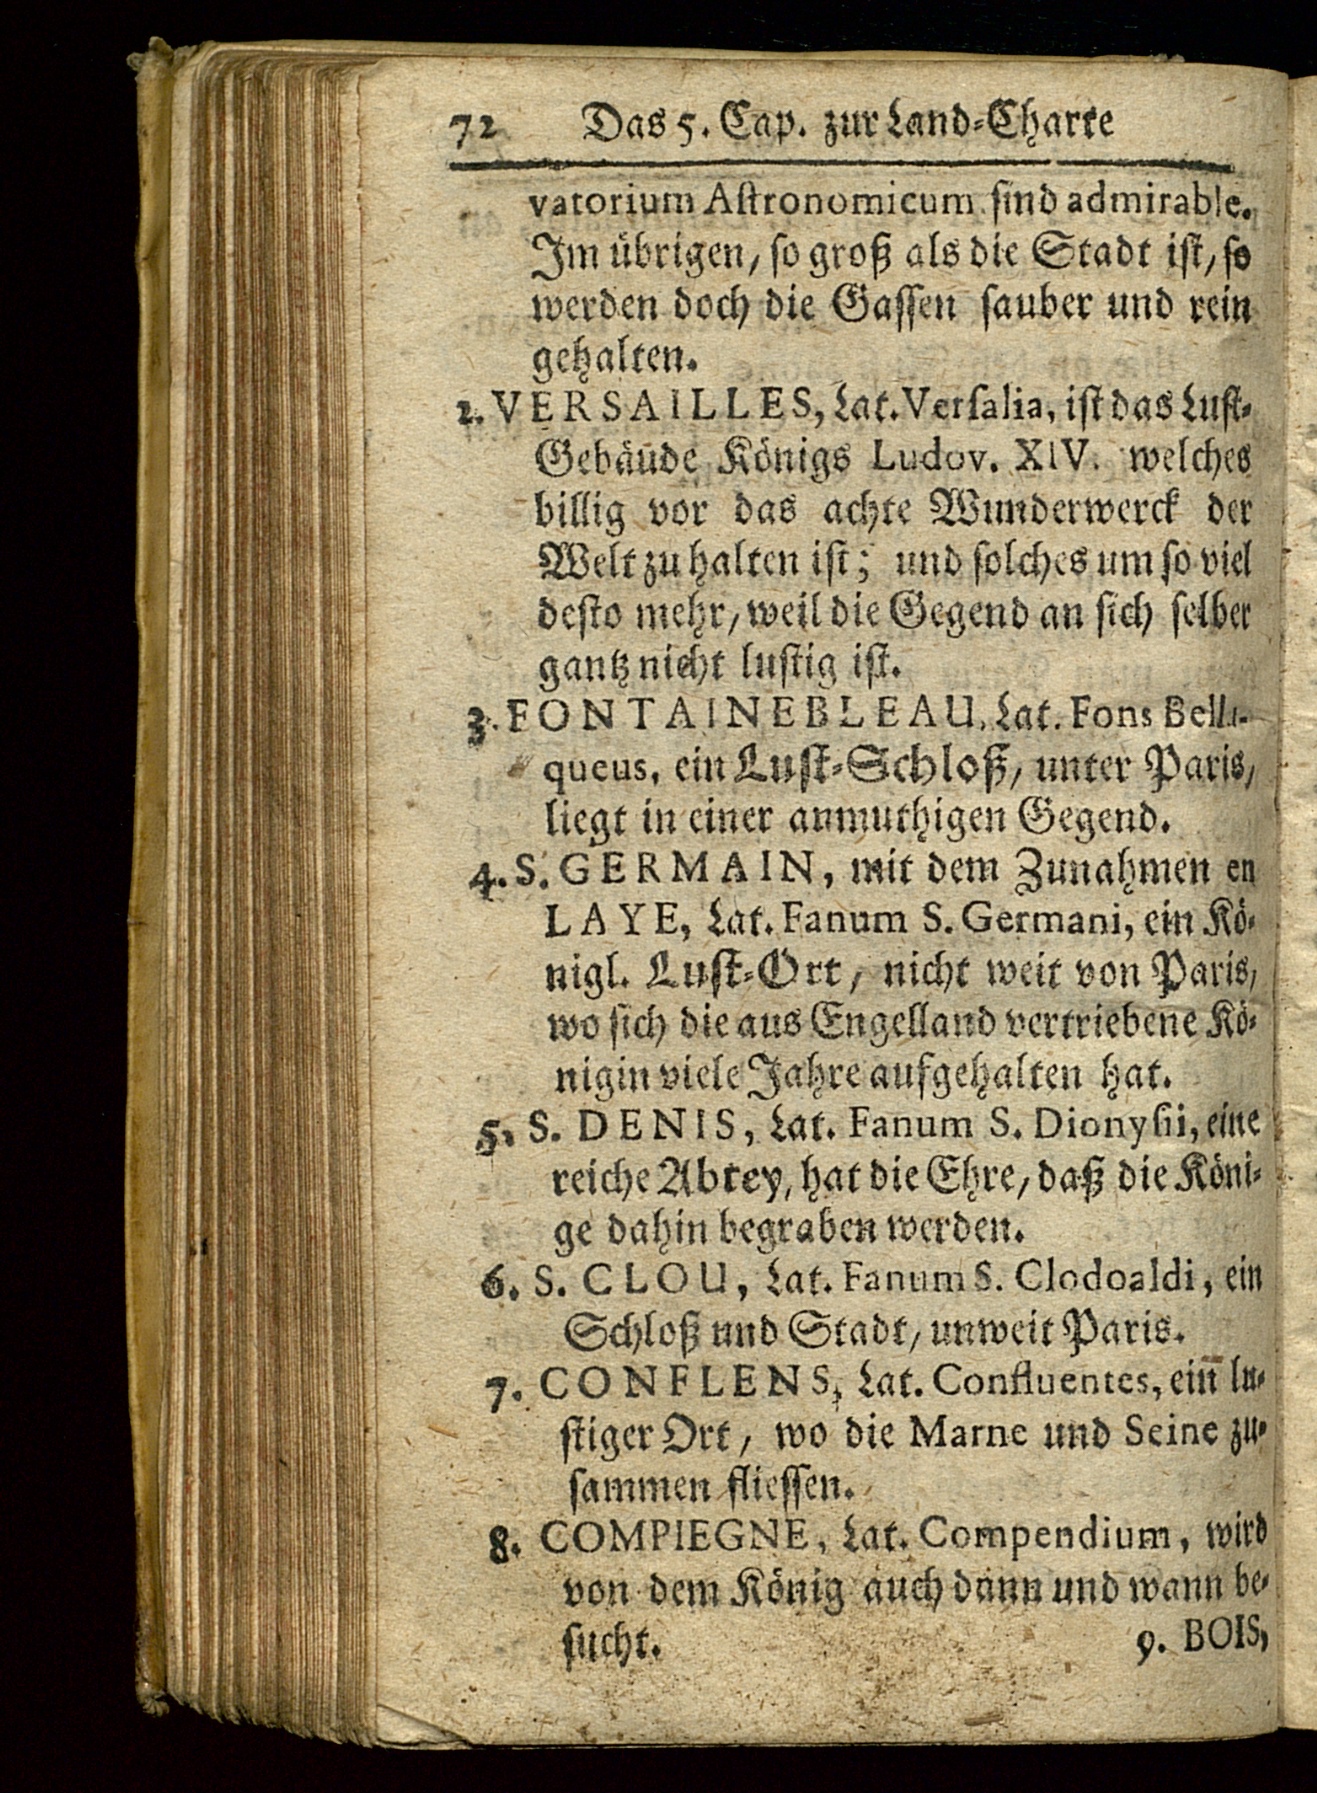 72 Das 5. Cap. zur Land-Charte
vatorium Astronomicum sind admirable.
Im übrigen, so groß als die Stadt ist, so
werden doch die Gassen sauber und rein
gehalten.
2. VERSAILLES, Lat. Versalia, ist das Lust-
Gebäude Königs Ludov. XIV. welches
billig vor das achte Wunderwerck der
Welt zu halten ist; und solches um so viel
desto mehr, weil die Gegend an sich selber
gantz nicht lustig ist.
3. FONTAINEBLEAU, Lat. Fons Bella-
queus, ein Lust-Schloß, unter Paris,
liegt in einer anmuthigen Gegend.
4. S. GERMAIN, mit dem Zunahmen en
LAYE, Lat. Fanum S. Germani, ein Kö-
nigl. Lust-Ort, nicht weit von Paris,
wo sich die aus Engelland vertriebene Kö-
nigin viele Jahre aufgehalten hat.
5. S. DENIS, Lat. Fanum S. Dionysii, eine
reiche Abtey, hat die Ehre, daß die Köni-
ge dahin begraben werden.
6. S. CLOU, Lat. Fanum S. Clodoaldi, ein
Schloß und Stadt, unweit Paris.
7. CONFLENS, Lat. Confluentes, ein lu-
stiger Ort, wo die Marne und Seine zu-
sammen fliessen.
8. COMPIEGNE, Lat. Compendium, wird
von dem König auch dann und wann be-
sucht. 9. BOIS,